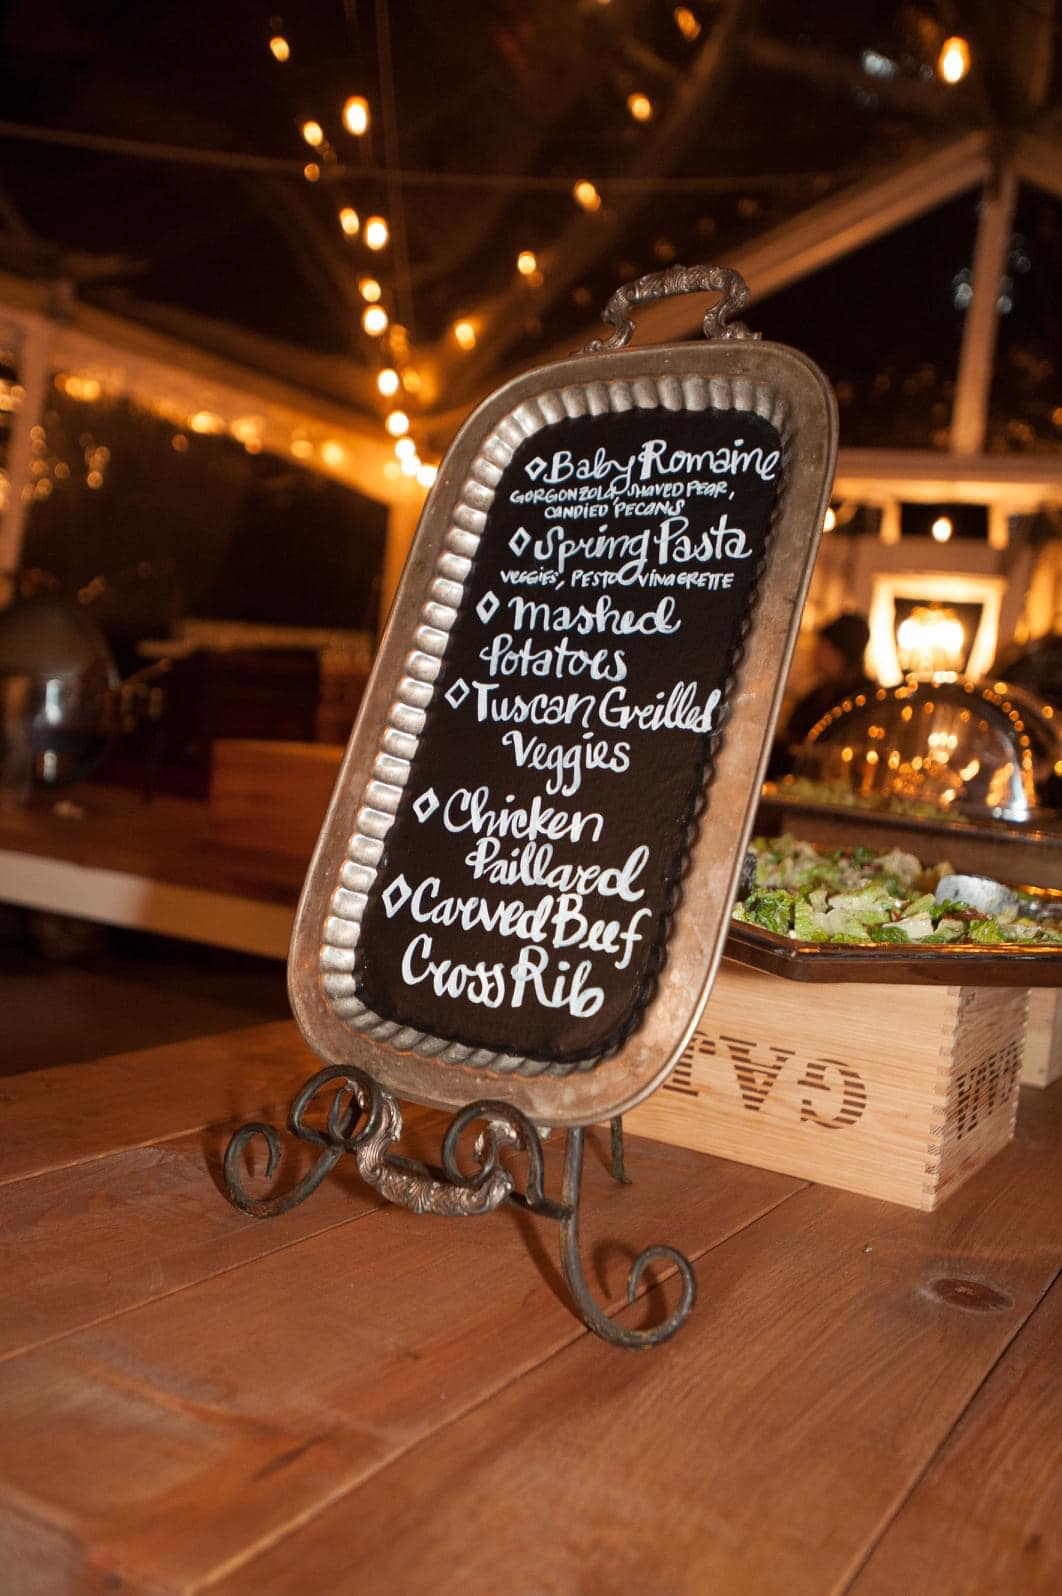 ◇ Baby Romaine
GORGONZOLA, SHAVED PEAR,
CANDIED PECANS
◇ Spring Pasta
VEGGIES, PESTO VINAGRETTE
◇ Mashed
Potatoes
◇ Tuscan Grilled
Veggies
◇ Chicken
Paillard
◇ Carved Beef
Cross Rib